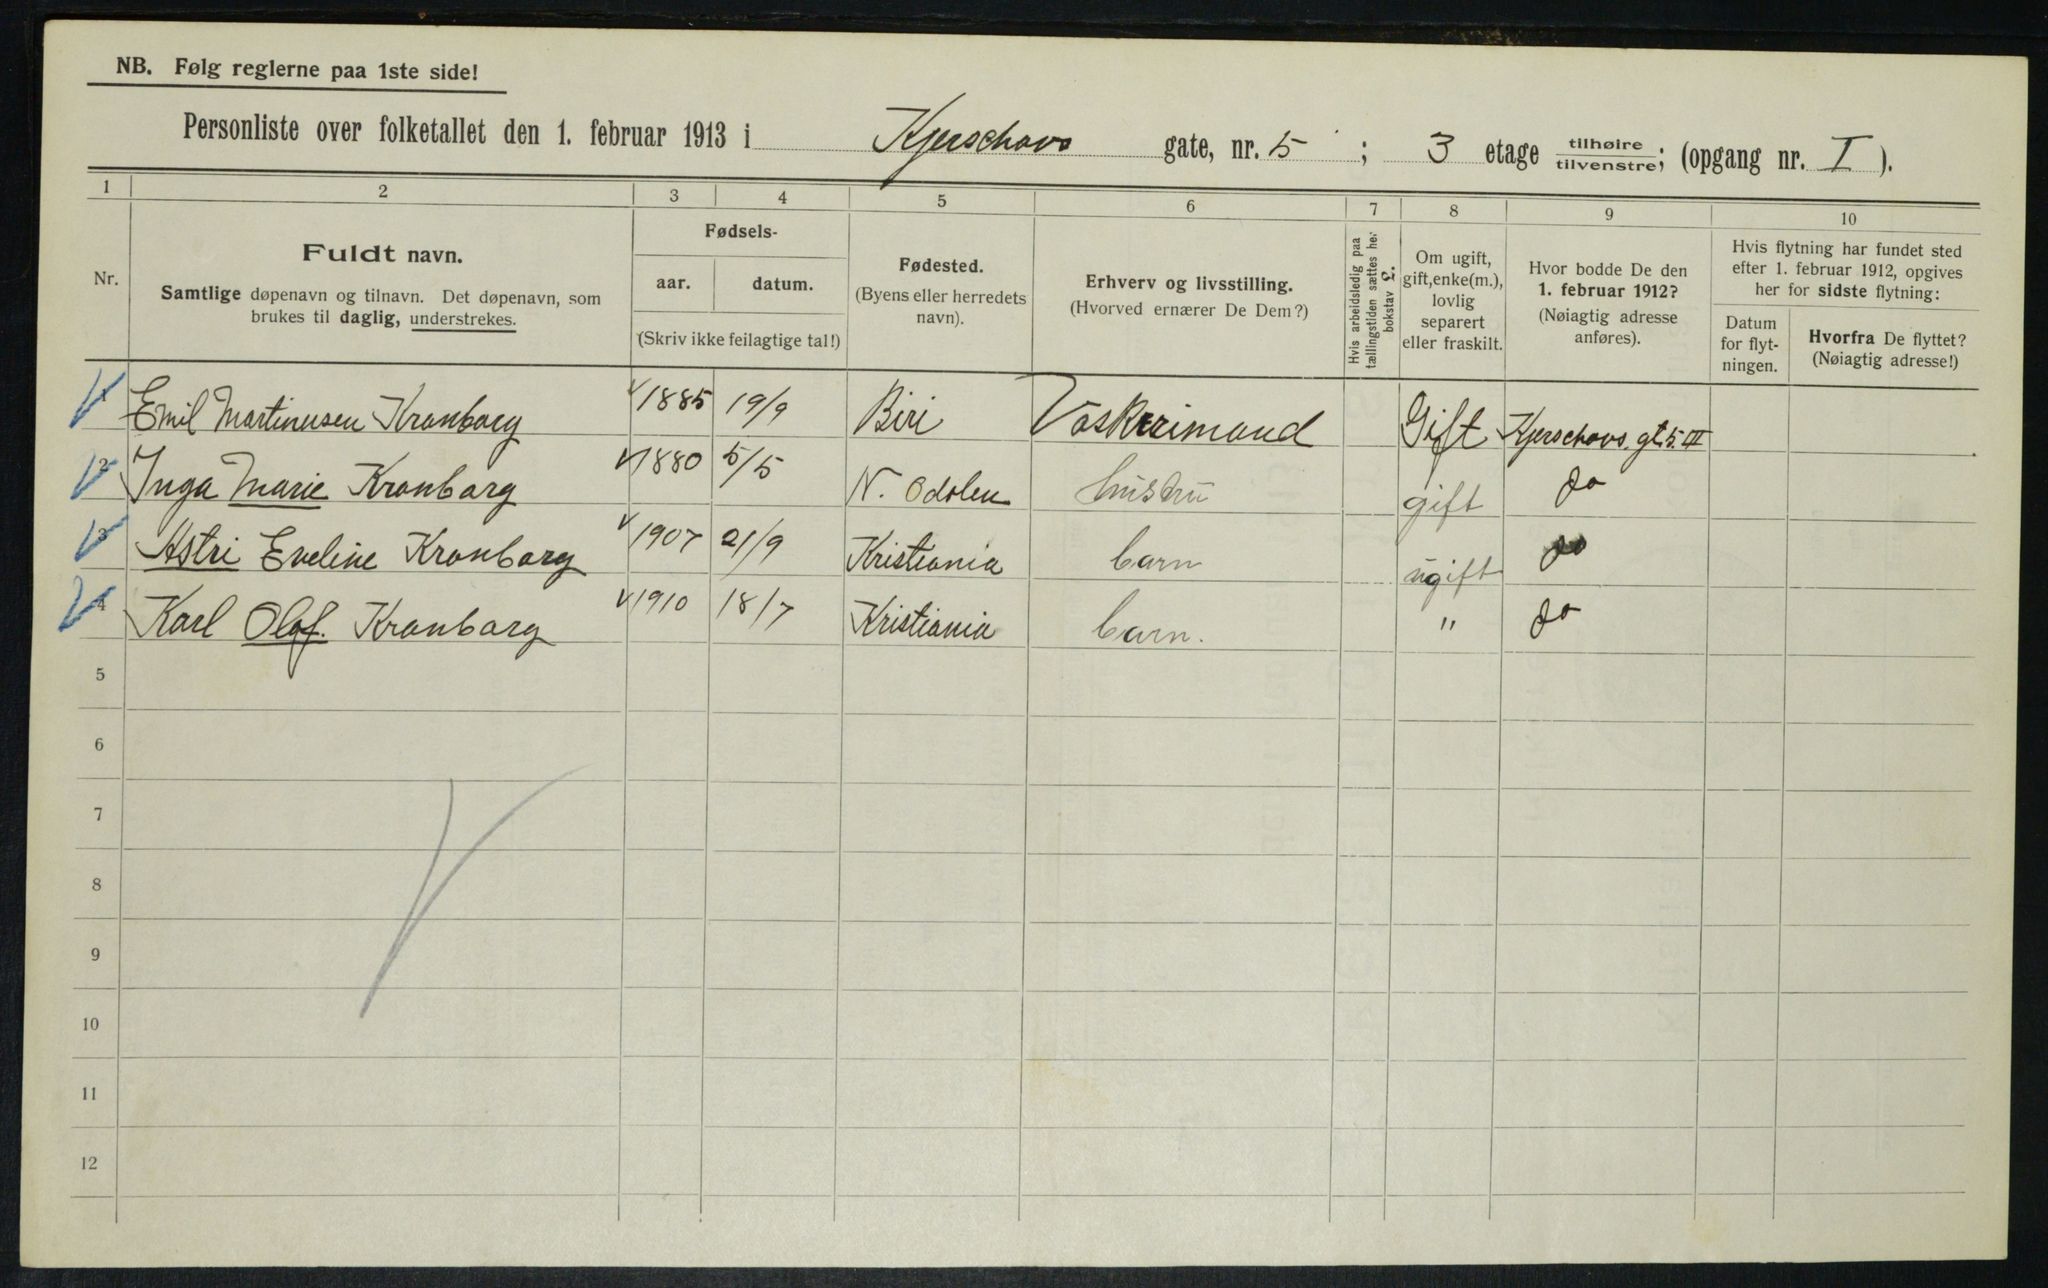 NB. Følg reglerne paa 1ste side!
Personliste over folketallet den 1. februar 1913 i Kjerschovs gate, nr. 5 ; 3 etage tilhøire tilvenstre; (opgang nr. I ).
1 2 3 4 5 6 7 8 9 10
Nr.
Fuldt navn.
Samtlige døpenavn og tilnavn. Det døpenavn, som
brukes til daglig, understrekes.
Fødsels-
aar. datum.
(Skriv ikke feilagtige tal!)
Fødested.
(Byens eller herredets
navn).
Erhverv og livsstilling.
(Hvorved ernærer De Dem?)
Hvis arbeidsledig paa
tællingstiden sættes her
bokstav L.
Om ugift,
gift, enke(m.),
lovlig
separert
eller fraskilt.
Hvor bodde De den
1. februar 1912?
(Nøiagtig adresse
anføres).
Hvis flytning har fundet sted
efter 1. februar 1912, opgives
her for sidste flytning:
Datum
for flyt-
ningen.
Hvorfra De flyttet?
(Nøiagtig adresse!)
1 Emil Martinusen Kronborg 1885 19/9 Biri Gift Kjerschovs gt. 5 III
2 Inga Marie Kronborg 1880 5/5 N. Odolen hustru gift do
3 Astri Eveline Kronborg 1907 21/9 Kristiania barn ugift do
4 Karl Olaf. Kronborg 1910 18/7 Kristiania barn. " do
5
6
7
8
9
10
11
12